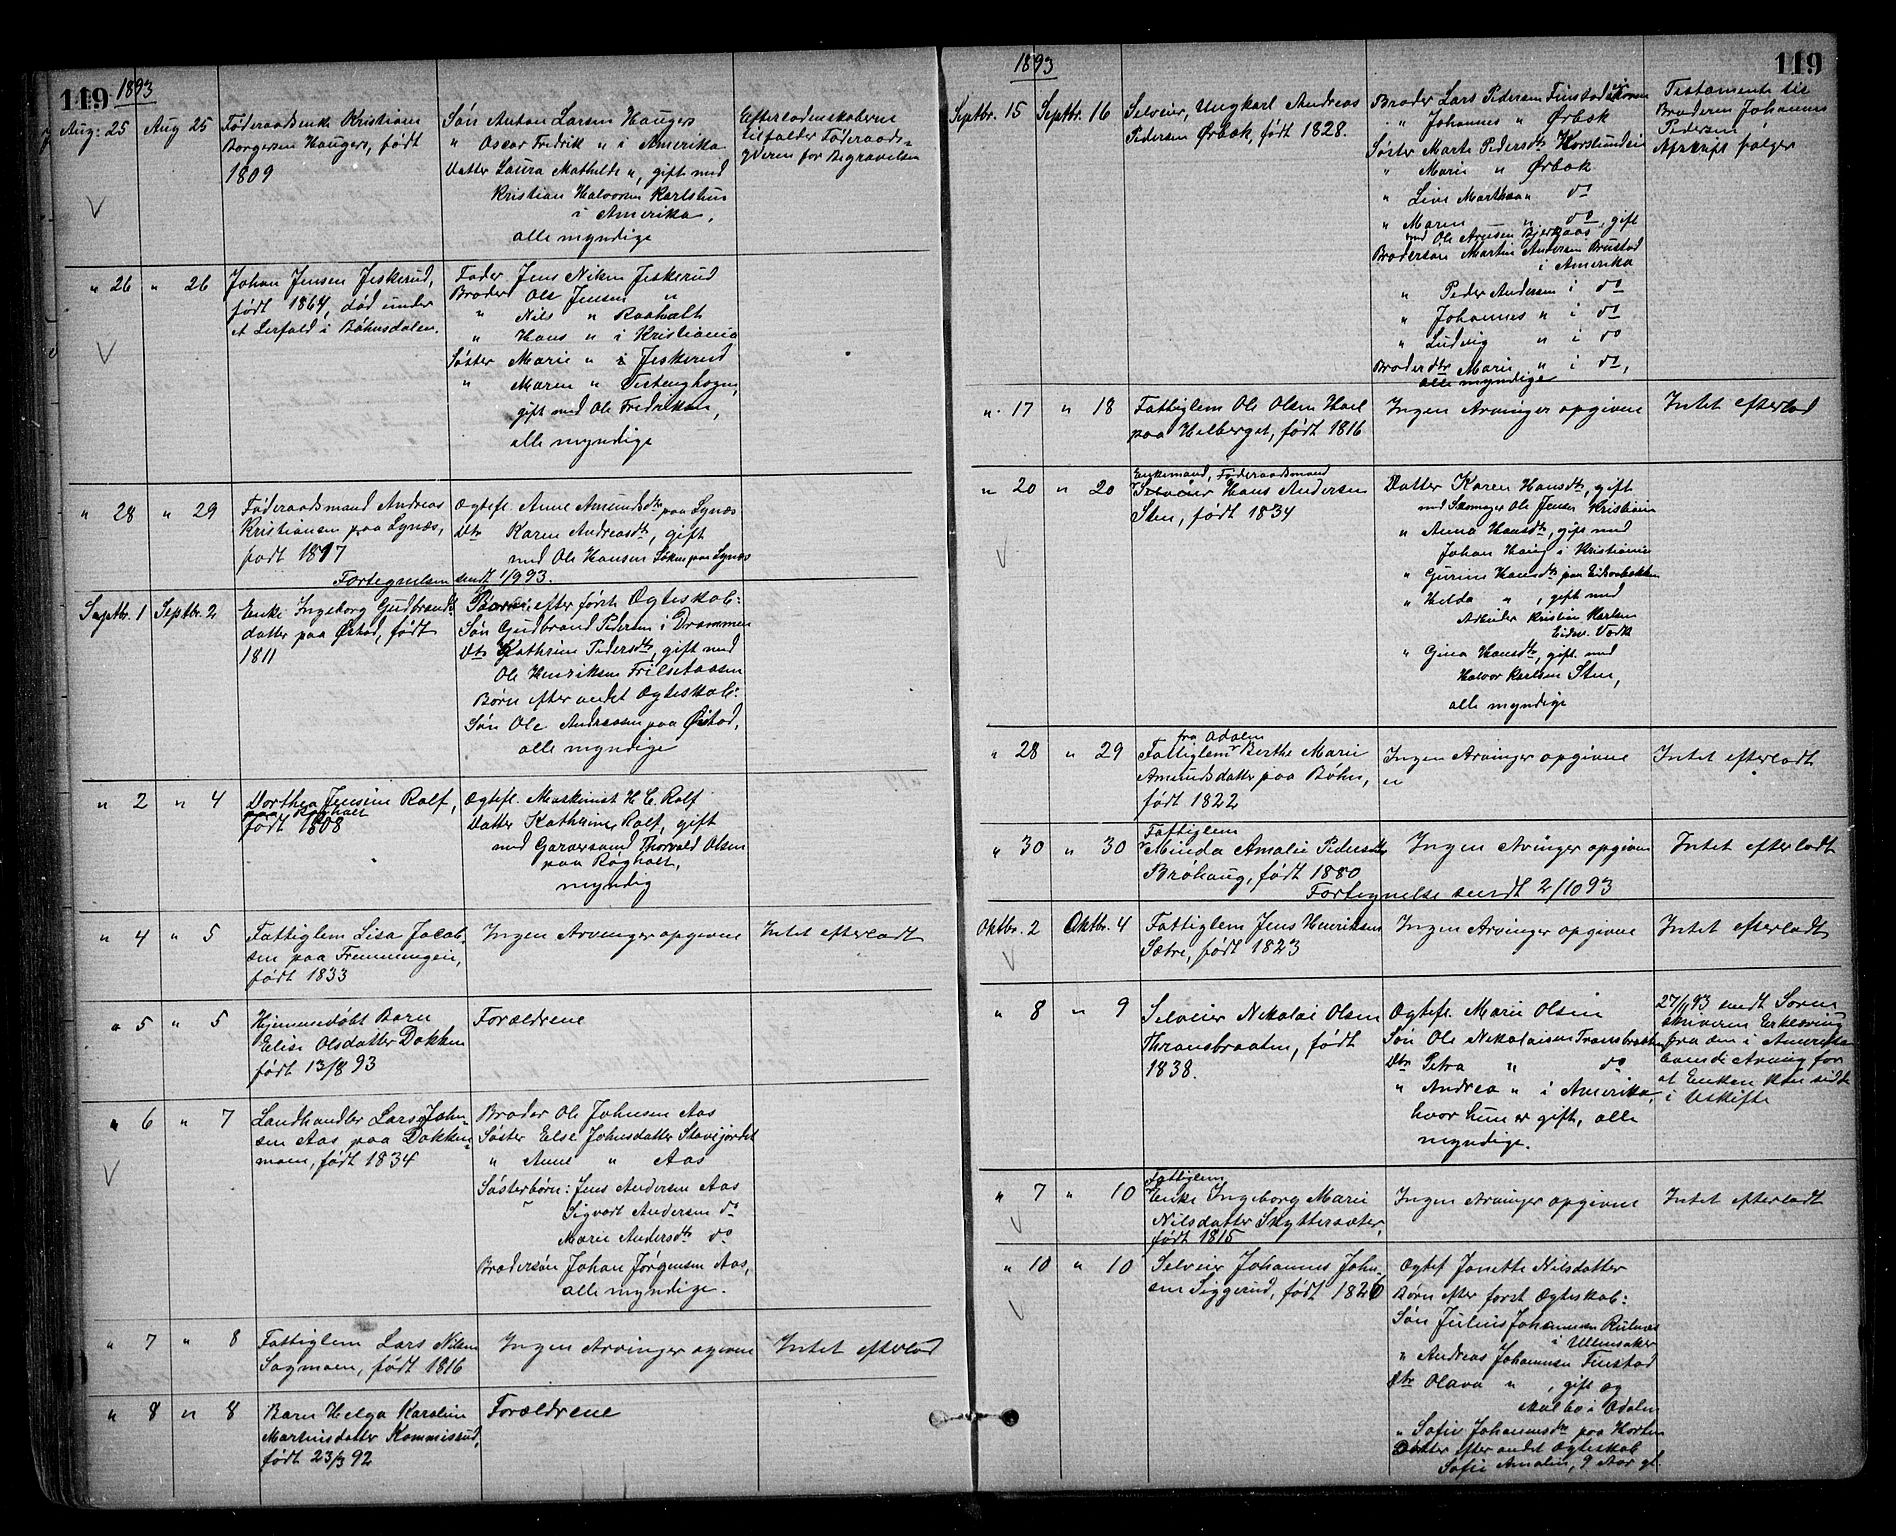 119 1893
Aug: 25 Aug 25 Føderaadsenke Kristiane Søn Anton Larsen Haugers Efterladenskaberne
Borgersen Haugers, født " Oscar Fredrik " i Amerika tilfalder Føderaads-
1809 Datter Laura Mathilde ", gift med yderen for Begravelsen
Kristian Halvorsen Karlshus
i Amerika,
alle myndige
" 26 " 26 Johan Jensen Jeskerud, Fader Jens Nilsen Jeskerud
født 1864, død under Broder Ole Jensen "
et Lerfald i Bøhnsdalen. " Nils " Raaholt
" Hans " i Kristiania
Søster Marie " i Jeskerud
" Maren " Testenghagen,
gift med Ole Fredriksen,
alle myndige
" 28 " 29 Føderaadsmand Andreas Ægtefl. Anne Amundsdtr paa Lynæs
Kristiansen paa Lynæs, Dtr Karen Andreasdtr, gift
født 1817 med Ole Hansen paa Lynæs
Fortegnelsen sendt 1/9 93.
Septbr. 1 Septbr. 2 Enke Ingeborg Gudbrands- Børn efter første Ægteskab:
datter paa Østad, født Søn Gudbrand Pedersen i Drammen
1811 Dtr Kathrine Pedersdtr, gift med
Ole Henriksen Frilsetaasen
Børn efter andet Ægteskab:
Søn Ole Andreassen paa Østad,
alle myndige
" 2 " 4 Dorthea Jensine Rolf, Ægtefl. Maskinist H C. Rolf
paa Røgholt Datter Kathrine Rolf, gift
født 1808 med Garversvend Thorvald Olsen
paa Røgholt,
myndig
" 4 " 5 Fattiglem Lisa Jacob- Ingen Arvinger opgivne Intet efterladt
sen paa Fremmingen,
født 1833
" 5 " 5 Hjemmedøbt Barn Forældrene
Elise Olsdatter Dokken
født 13/8 93
" 6 " 7 Landhandler Lars John- Broder Ole Johnsen Aas
sen Aas paa Dokken- Søster Else Johnsdatter Stavsjordet
moen, født 1834 " Anne " Aas
Søsterbørn: Jens Andersen Aas
Sigvart Andersen do
Marie Andersdtr do
Brodersøn Johan Jørgensen Aas,
alle myndige.
" 7 " 8 Fattiglem Lars Nilsen Ingen Arvinger ogivne Intet efterlad
Sagmoen, født 1816
" 8 " 8 Barn Helga Karoline Forældrene
Martinsdatter Kommisrud,
født 23/3 92
1893 119
Septbr. 15 Septbr. 16 Selveier, Ungkarl Andreas Broder Lars Pedersen Finstad Testamente til
Pedersen Ørbæk, født 1828. " Johannes " Ørbæk Broderen Johannes
Søster Marte Pedersdtr Korslundeie Pedersen
" Marie " Ørbæk Afskrift følger
" Live Marthea " do
" Maren " do, gift
med Ole Bjerkaas
Brodersøn Martin Andersen Brustad
i Amerika
" Peder Andersen i do
" Johannes " i do
" Ludvig " i do
Broderdtr Marie " i do,
alle myndige
" 17 " 18 Fattiglem Ole Olsen Hoel Ingen Arvinger opgivne Intet efterlad
paa Helberget, født 1816
Enkemand, Føderaadsmand
" 20 " 20 Selveier Hans Andersen Datter Karen Hansdtr, gift
Sten, født 1834 med Skomager Ole Jensen Kristiania
" Anna Hansdtr, gift med
Johan Haug i Kristiania
" Gurine Hansdtr paa Eidsvoldbakken
" Helda " , gift med
Arbeider Kristian Karlsen
Eidsv. Værk
" Gina Hansdtr, gift med
Halvor Karlsen Sten,
alle myndige
fra Odalen
" 28 " 29 Fattiglem Berthe Marie Ingen Arvinger opgivne Intet efterladt
Amundsdatter paa Bøhn, "
født 1822
Fattiglem
" 30 " 30 Minda Amalie Pedersdtr Ingen Arvinger opgivne Intet efterladt
Brøhaug, født 1880
Fortegnelse sendt 2/10 93
Oktbr. 2 Oktbr. 4 Fattiglem Jens Henriksen Ingen Arvinger opgivne Intet efterladt
Sætre, født 1823
" 8 " 9 Selveier Nikolai Olsen Ægtefl. Marie Olsen 27/11 93 sendt Soren-
Thransbraaten, født Søn Ole Nikolaisen Transbraaten skriveren Erklæring
1838. Dtr Petra " do fra den i Amerika
" Andrea " i Amerika, boende Arving for
hvor hun er gift, alle at Enken kan sidde
myndige. i Uskifte
Fattiglem
" 7 " 10 Enke Ingeborg Marie Ingen Arvinger opgivne Intet efterladt
Nilsdatter Skyttersæter,
født 1815
" 10 " 10 Selveier Johannes John- Ægtef Janette Nilsdatter
sen Siggerud, født 1826 Børn efter først Ægteskab:
Søn Julius Johannesen
i Ullensaker
" Andreas Johannesen Finstad
Dtr Olava " , gift og
bo i Odalen
" Sofie Johannesdtr paa Horten
Datter efter andet Ægteskab
Sofie Amalie, 9 Aar gl.